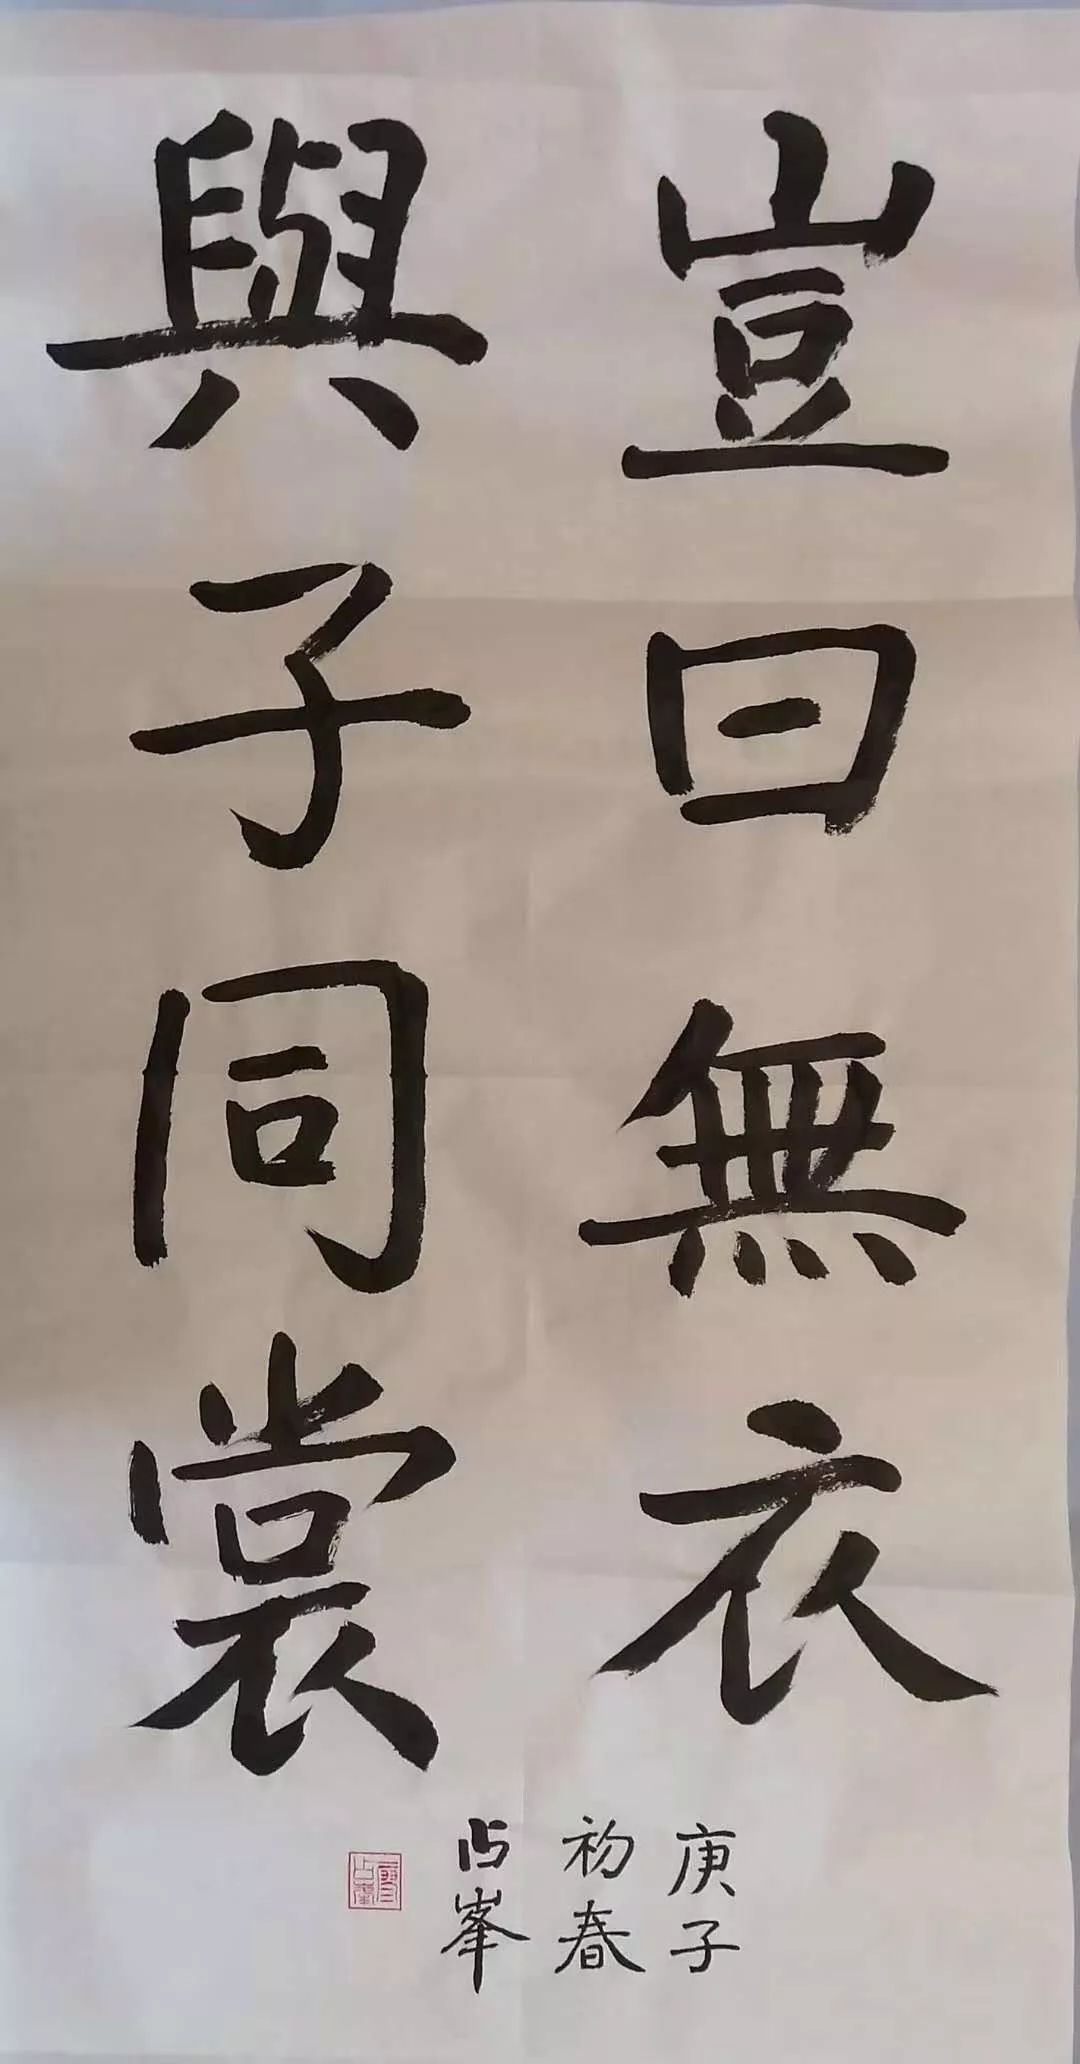 豈曰無衣
與子同裳
庚子
初春
占峯